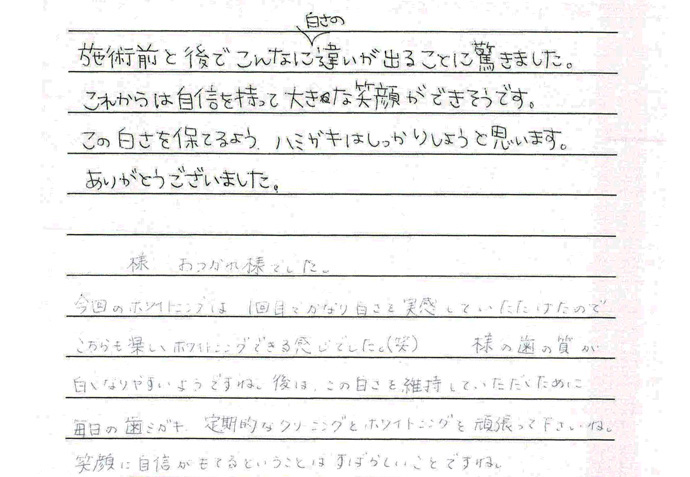 白さの
施術前と後でこんなに違いが出ることに驚きました。
これからは自信を持って大きな笑顔ができそうです。
この白さを保てるよう、ハミガキはしっかりしようと思います。
ありがとうございました。
様 おつかれ様でした。
今回のホワイトニングは 1回目でかなり白さを実感していただけたので
こちらも楽しいホワイトニングできる感じでした。(笑) 様の歯の質が
白くなりやすいようですね。後は、この白さを維持していただくために
毎日の歯ミガキ、定期的なクリーニングとホワイトニングを頑張って下さいね。
笑顔に自信がもてるということはすばらしいことですね。